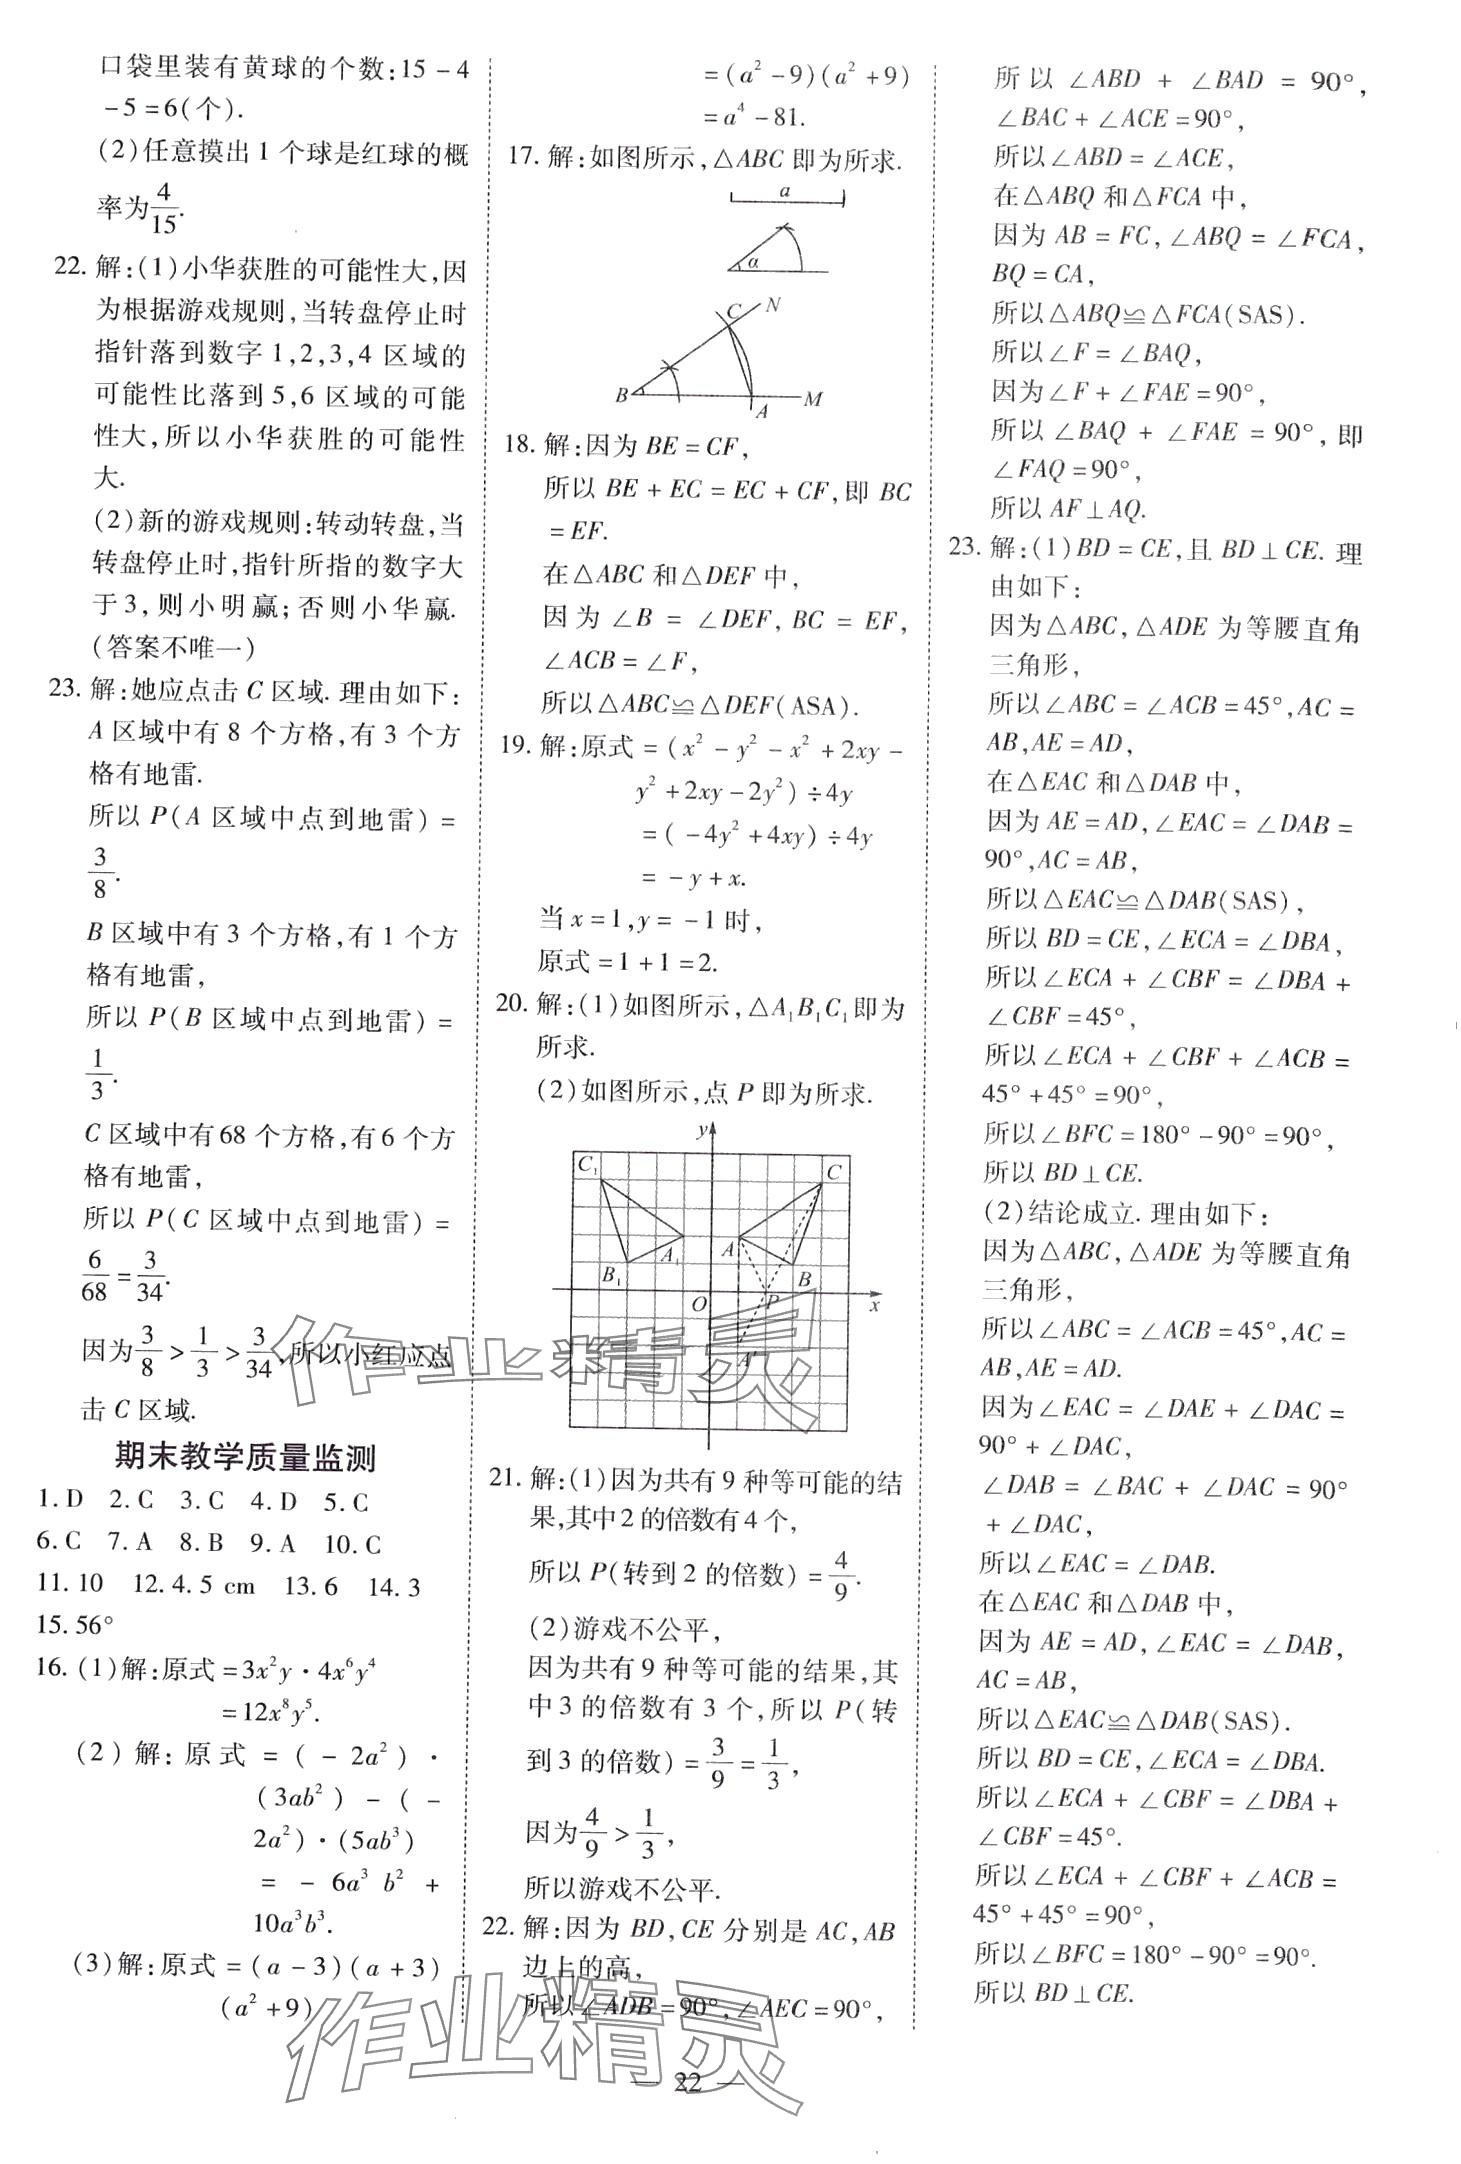 口袋里装有黄球的个数:15-4
-5=6(个).
(2)任意摸出1个球是红球的概
率为4/15.
22. 解:(1)小华获胜的可能性大,因
为根据游戏规则,当转盘停止时
指针落到数字1,2,3,4区域的
可能性比落到5,6区域的可能
性大,所以小华获胜的可能性
大.
(2)新的游戏规则:转动转盘,当
转盘停止时,指针所指的数字大
于3,则小明赢;否则小华赢.
(答案不唯一)
23. 解:她应点击C区域.理由如下:
A区域中有8个方格,有3个方
格有地雷.
所以P(A区域中点到地雷)=
3/8.
B区域中有3个方格,有1个方
格有地雷,
所以P(B区域中点到地雷)=
1/3.
C区域中有68个方格,有6个方
格有地雷,
所以P(C区域中点到地雷)=
6/68=3/34.
因为3/8>1/3>3/34,所以小红应点
击C区域.
期末教学质量监测
1.D 2.C 3.C 4.D 5.C
6.C 7.A 8.B 9.A 10.C
11.10 12.4.5 cm 13.6 14.3
15.56°
16. (1)解:原式=3x²y·4x⁶y⁴
=12x⁸y⁵.
(2)解:原式=(-2a²)·
(3ab²)-(-
2a²)·(5ab³)
=-6a³b²+
10a³b³.
(3)解:原式=(a-3)(a+3)
(a²+9)
=(a²-9)(a²+9)
=a⁴-81.
17. 解:如图所示,△ABC即为所求.
a
α
C N
B A M
18. 解:因为BE=CF,
所以BE+EC=EC+CF,即BC
=EF.
在△ABC和△DEF中,
因为∠B=∠DEF,BC=EF,
∠ACB=∠F,
所以△ABC≌△DEF(ASA).
19. 解:原式=(x²-y²-x²+2xy-
y²+2xy-2y²)÷4y
=(-4y²+4xy)÷4y
=-y+x.
当x=1,y=-1时,
原式=1+1=2.
20. 解:(1)如图所示,△A₁B₁C₁即为
所求.
(2)如图所示,点P即为所求.
y
C₁ C
A₁ A
B₁ B
O P x
A'
21. 解:(1)因为共有9种等可能的结
果,其中2的倍数有4个,
所以P(转到2的倍数)=4/9.
(2)游戏不公平,
因为共有9种等可能的结果,其
中3的倍数有3个,所以P(转
到3的倍数)=3/9=1/3,
因为4/9>1/3,
所以游戏不公平.
22. 解:因为BD,CE分别是AC,AB
边上的高,
所以∠ADB=90°,∠AEC=90°,
所以∠ABD+∠BAD=90°,
∠BAC+∠ACE=90°,
所以∠ABD=∠ACE,
在△ABQ和△FCA中,
因为AB=FC,∠ABQ=∠FCA,
BQ=CA,
所以△ABQ≌△FCA(SAS).
所以∠F=∠BAQ,
因为∠F+∠FAE=90°,
所以∠BAQ+∠FAE=90°,即
∠FAQ=90°,
所以AF⊥AQ.
23. 解:(1)BD=CE,且BD⊥CE.理
由如下:
因为△ABC,△ADE为等腰直角
三角形,
所以∠ABC=∠ACB=45°,AC=
AB,AE=AD,
在△EAC和△DAB中,
因为AE=AD,∠EAC=∠DAB=
90°,AC=AB,
所以△EAC≌△DAB(SAS),
所以BD=CE,∠ECA=∠DBA,
所以∠ECA+∠CBF=∠DBA+
∠CBF=45°,
所以∠ECA+∠CBF+∠ACB=
45°+45°=90°,
所以∠BFC=180°-90°=90°,
所以BD⊥CE.
(2)结论成立.理由如下:
因为△ABC,△ADE为等腰直角
三角形,
所以∠ABC=∠ACB=45°,AC=
AB,AE=AD.
因为∠EAC=∠DAE+∠DAC=
90°+∠DAC,
∠DAB=∠BAC+∠DAC=90°
+∠DAC,
所以∠EAC=∠DAB.
在△EAC和△DAB中,
因为AE=AD,∠EAC=∠DAB,
AC=AB,
所以△EAC≌△DAB(SAS).
所以BD=CE,∠ECA=∠DBA.
所以∠ECA+∠CBF=∠DBA+
∠CBF=45°.
所以∠ECA+∠CBF+∠ACB=
45°+45°=90°,
所以∠BFC=180°-90°=90°.
所以BD⊥CE.
作业精灵
作业精灵
— 22 —